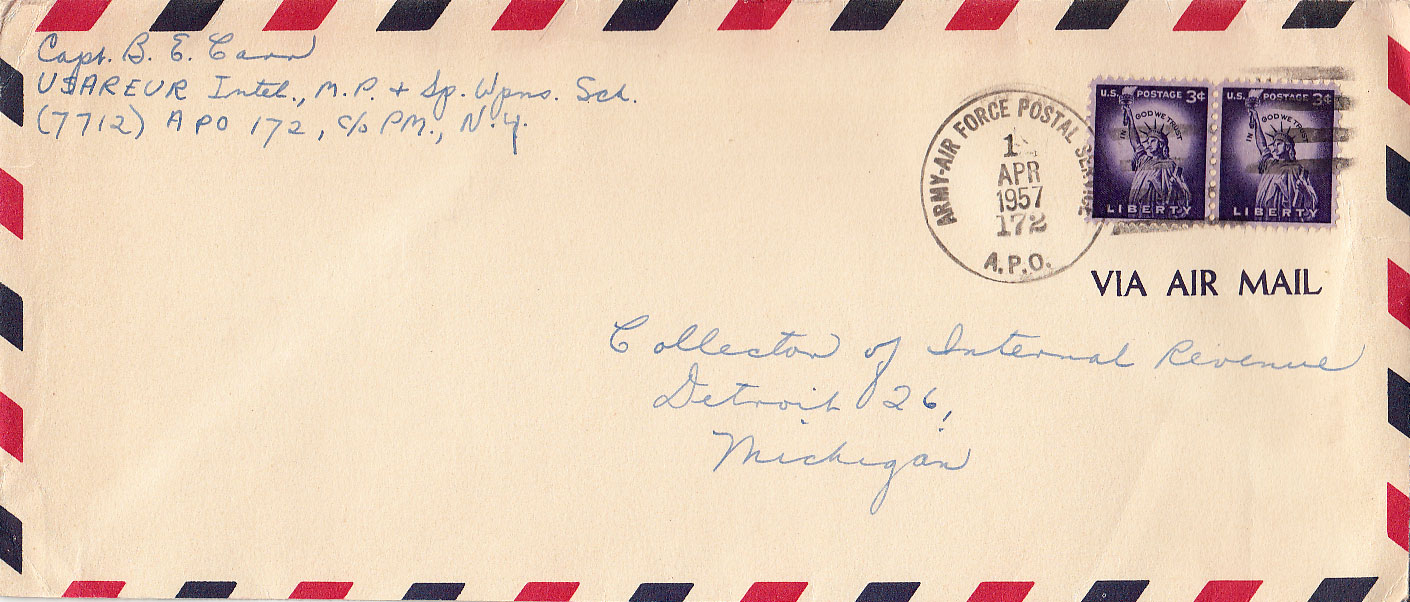 Capt. B. E. Carr
USAREUR Intel., M.P. + Sp. Wpns. Sch.
(7712) APO 172, c/o PM., N.Y.
ARMY-AIR FORCE POSTAL SERVICE
APR
1957
172
A.P.O.
U.S. POSTAGE 3¢
IN GOD WE TRUST
LIBERTY
U.S. POSTAGE 3¢
IN GOD WE TRUST
LIBERTY
VIA AIR MAIL
Collector of Internal Revenue
Detroit 26,
Michigan